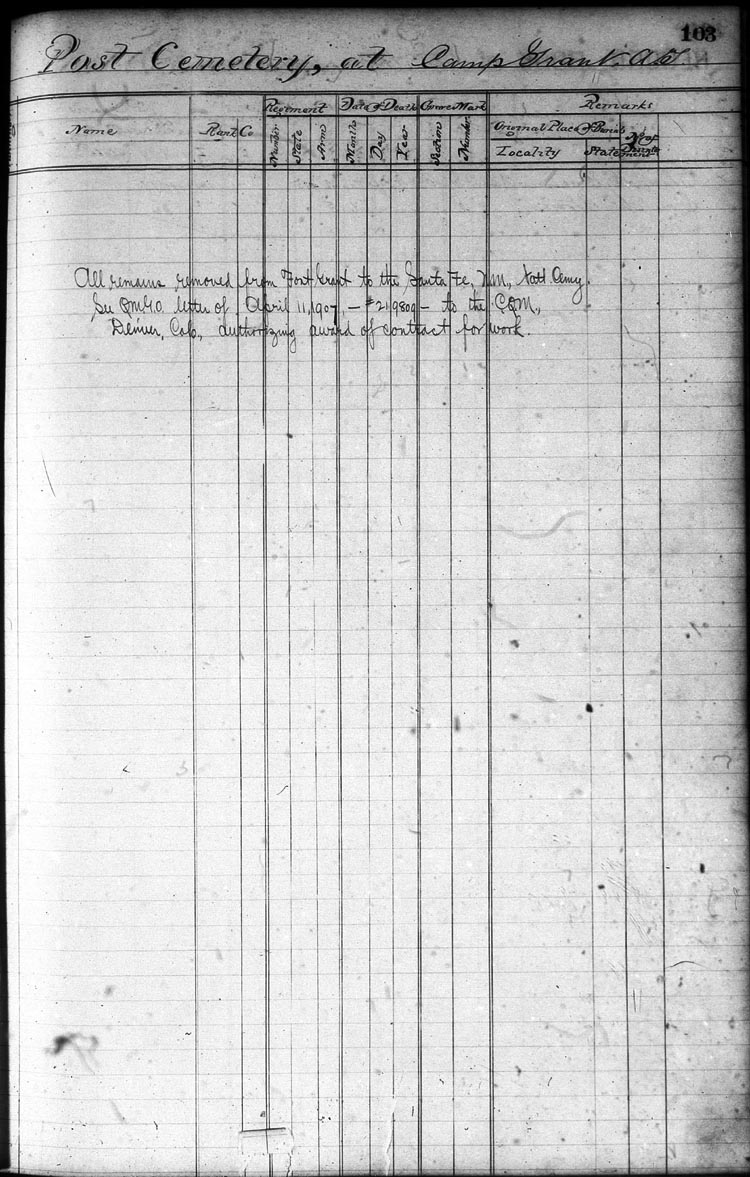 103
Post Cemetery, at Camp Grant. A.T.
Regiment Date of Death Grave Mark Remarks
Name Rank Co Number State Arm Month Day Year Section Number Original Place of Burial No of
Locality Statement
All remains removed from Fort Grant to the Santa Fe, N.M., Natl Cemy.
See QMGO letter of April 11, 1907, - #219809 - to the CQM,
Denver, Colo., authorizing award of contract for work.